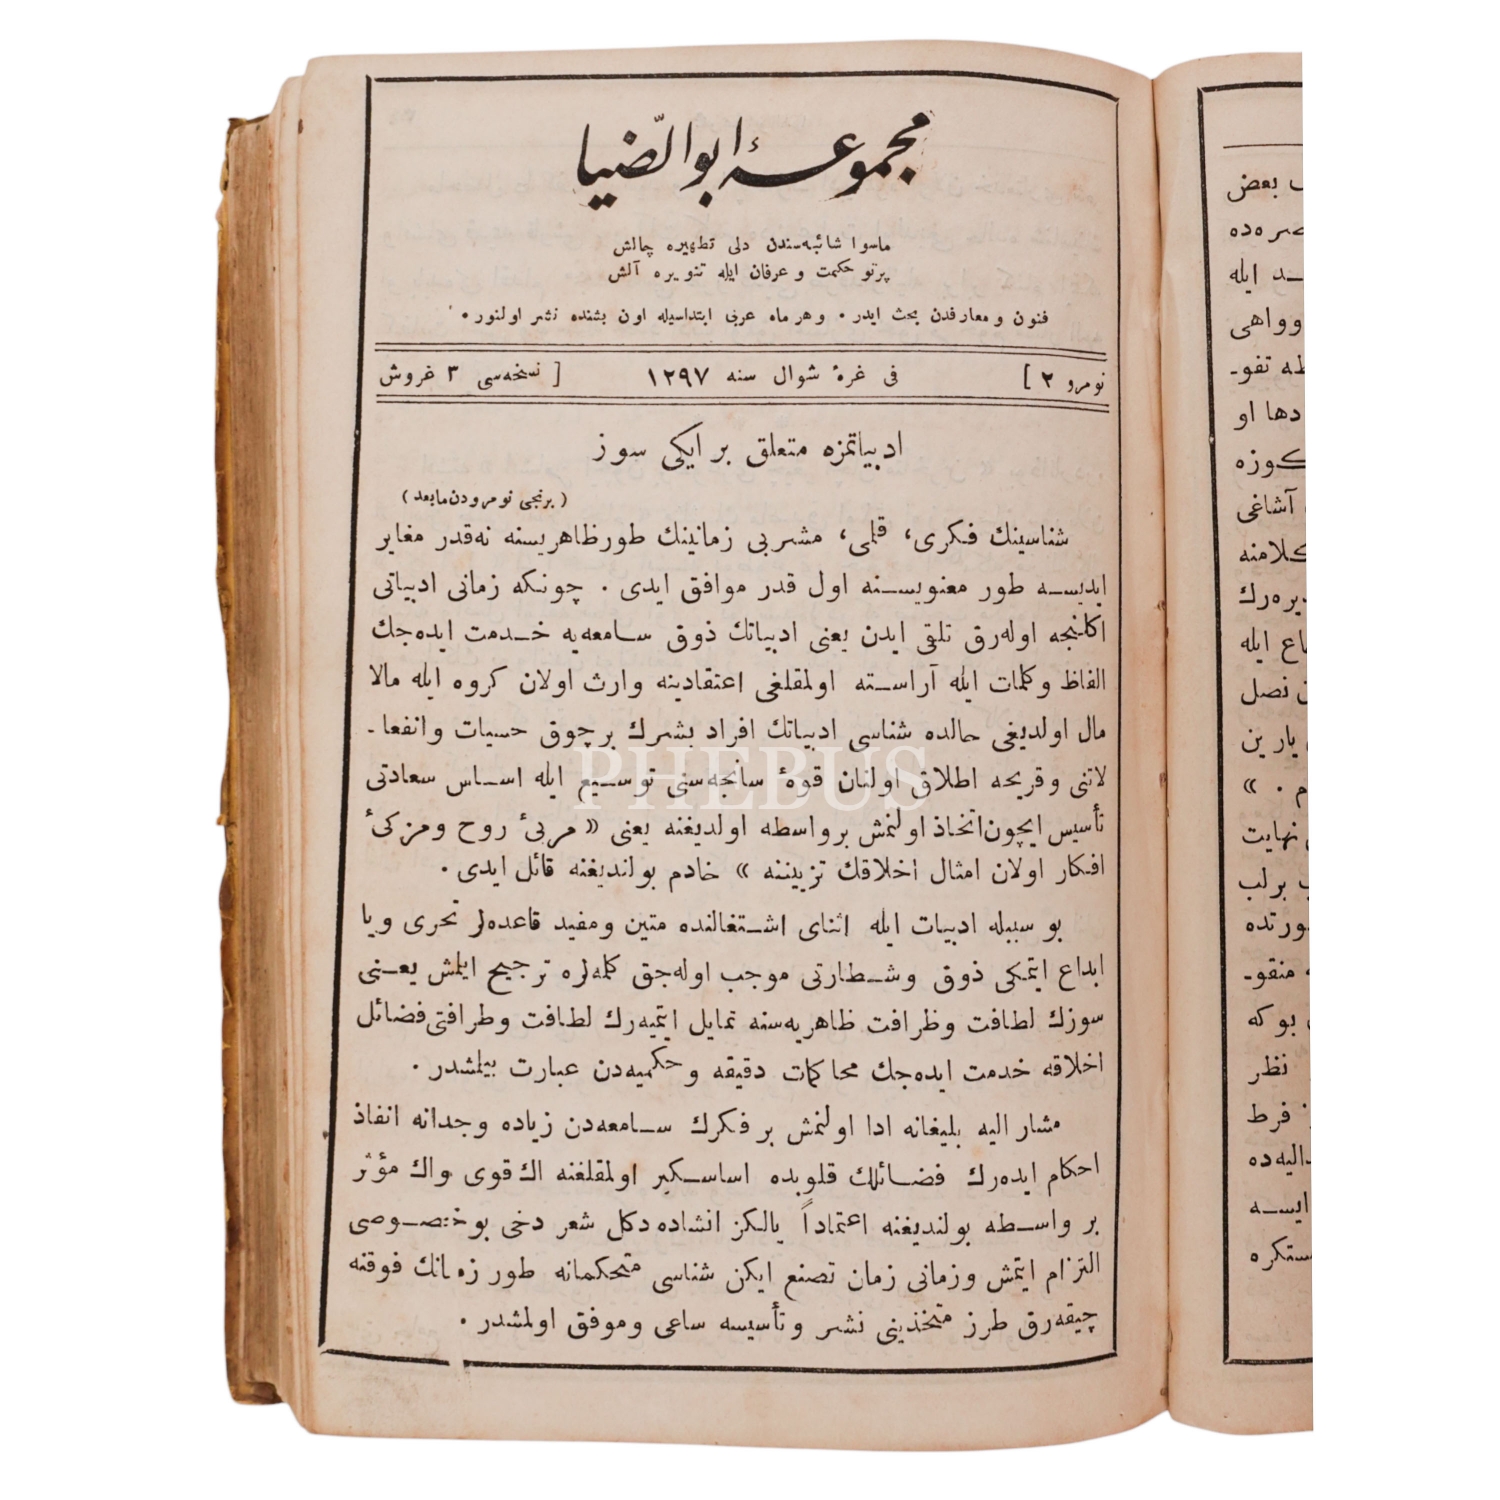 مجموعۀ ابوالضّیا
ماسوا شائبه‌سندن دلی تطهیره چالش
پرتو حکمت و عرفان ایله تنویره آلش
فنون و معارفدن بحث ایدر . وهر ماه عربی ابتداسیله اون بشنده نشر اولنور .
نومرو ۲ ] فی غرۀ شوال سنه ۱۲۹۷ [ نسخه‌سی ۳ غروش
ادبیاتمزه متعلق بر ایکی سوز
( برنجی نومرودن مابعد )
شناسینك فکری، قلمی، مشربی زمانینك طور ظاهریسنه نه‌قدر مغایر
ایدیسه طور معنویسنه اول قدر موافق ایدی . چونکه زمانی ادبیاتی
اکلنجه اوله‌رق تلقی ایدن یعنی ادبیاتك ذوق سامعه‌یه خدمت ایده‌جك
الفاظ وکلمات ایله آراسته اولمقلغی اعتقادینه وارث اولان کروه ایله مالا
مال اولدیغی حالده شناسی ادبیاتك افراد بشرك برچوق حسیات وانفعا-
لاتنی وقریحه اطلاق اولنان قوۀ سانحه‌سنی توسیع ایله اساس سعادتی
تأسیس ایچون اتخاذ اولنمش برواسطه اولدیغنه یعنی « مربیٔ روح ومزکیٔ
افکار اولان امثال اخلاقك تزییننه » خادم بولندیغنه قائل ایدی .
بو سببله ادبیات ایله اثنای اشتغالنده متین ومفید قاعده‌لر تحری ویا
ابداع ایتمکی ذوق وشطارتی موجب اوله‌جق کلمه‌لره ترجیح ایلمش یعنی
سوزك لطافت وظرافت ظاهریه‌سنه تمایل ایتمیه‌رك لطافت وظرافتی فضائل
اخلاقه خدمت ایده‌جك محاکمات دقیقه وحکمیه‌دن عبارت بیلمشدر .
مشار الیه بلیغانه ادا اولنمش بر فکرك سامعه‌دن زیاده وجدانه انفاذ
احکام ایده‌رك فضائلك قلوبده اساسکیر اولمقلغنه اك قوی واك مؤثر
بر واسطه بولندیغنه اعتماداً یالکز انشاده دکل شعر دخی بوخصوصی
التزام ایتمش وزمانی زمان تصنع ایکن شناسی متحکمانه طور زمانك فوقنه
چیقه‌رق طرز متخذینی نشر وتأسیسه ساعی وموفق اولمشدر .
PHEBUS
بعض
ایله
وواهی
تفو-
دها او
کوزه
آشاغی
کلامنه
ایله
نصل
یارین
م . »
نهایت
برلب
منقو-
بوکه
نظر
فرط
ایسه